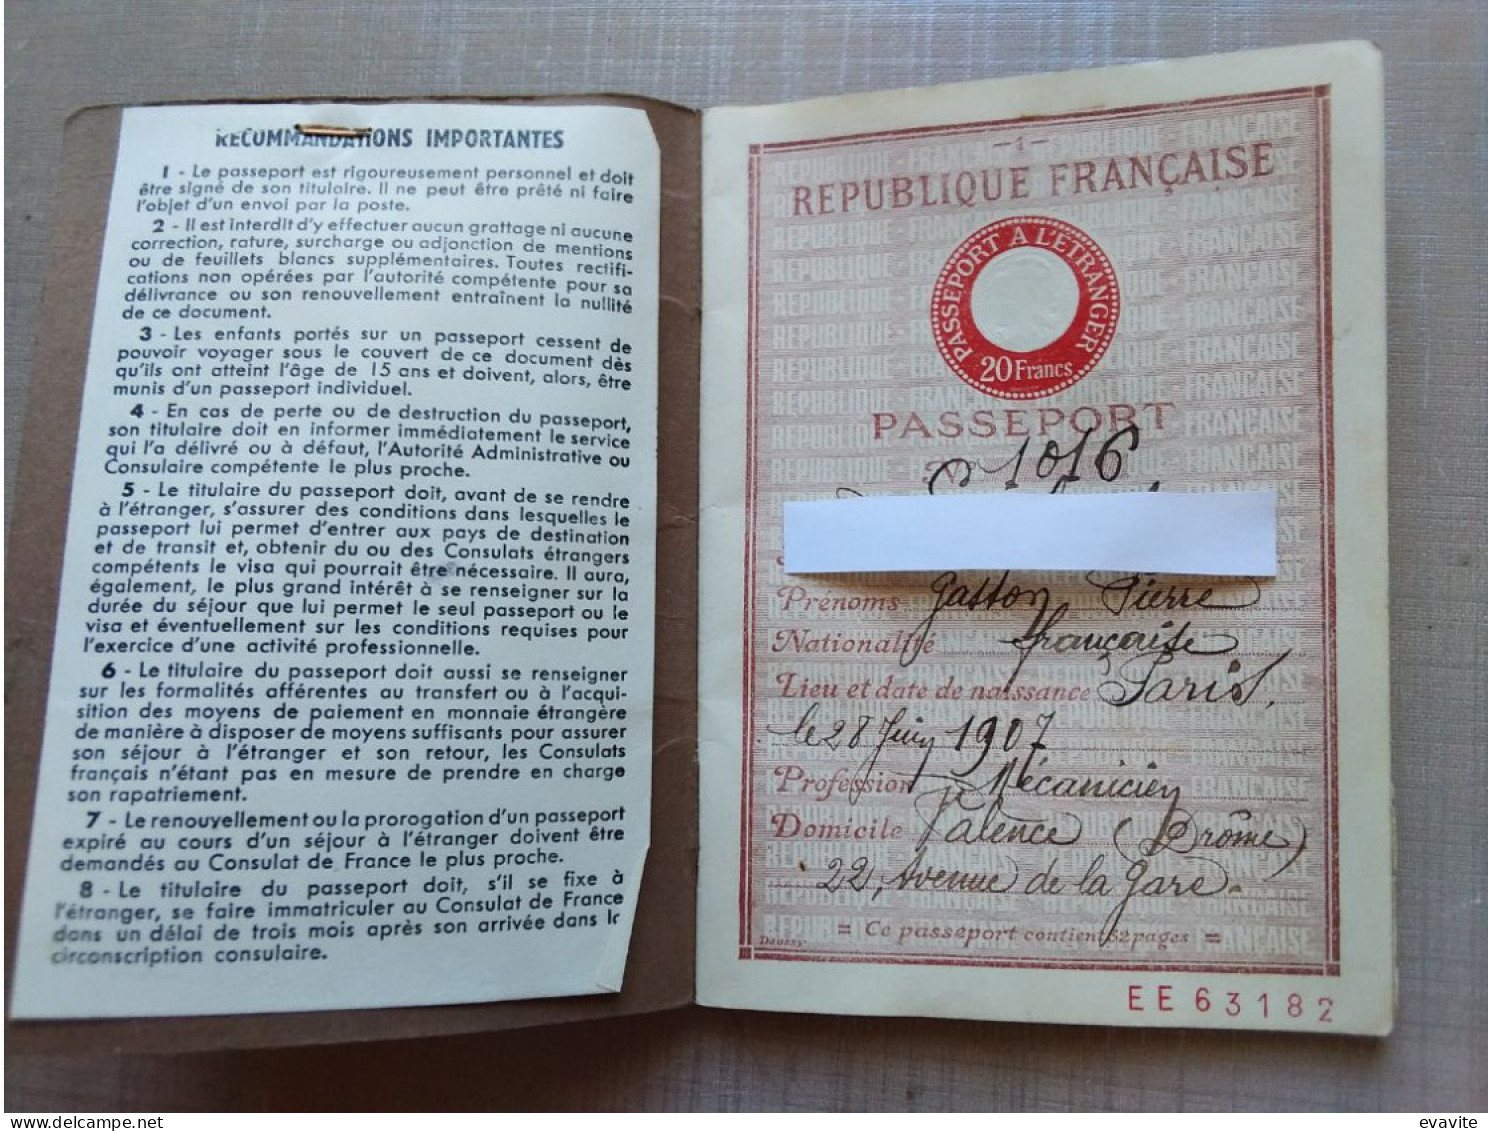 RECOMMANDATIONS IMPORTANTES
1 - Le passeport est rigoureusement personnel et doit
être signé de son titulaire. Il ne peut être prêté ni faire
l'objet d'un envoi par la poste.
2 - Il est interdit d'y effectuer aucun grattage ni aucune
correction, rature, surcharge ou adjonction de mentions
ou de feuillets blancs supplémentaires. Toutes rectifi-
cations non opérées par l'autorité compétente pour sa
délivrance ou son renouvellement entraînent la nullité
de ce document.
3 - Les enfants portés sur un passeport cessent de
pouvoir voyager sous le couvert de ce document dès
qu'ils ont atteint l'âge de 15 ans et doivent, alors, être
munis d'un passeport individuel.
4 - En cas de perte ou de destruction du passeport,
son titulaire doit en informer immédiatement le service
qui l'a délivré ou à défaut, l'Autorité Administrative ou
Consulaire compétente le plus proche.
5 - Le titulaire du passeport doit, avant de se rendre
à l'étranger, s'assurer des conditions dans lesquelles le
passeport lui permet d'entrer aux pays de destination
et de transit et, obtenir du ou des Consulats étrangers
compétents le visa qui pourrait être nécessaire. Il aura,
également, le plus grand intérêt à se renseigner sur la
durée du séjour que lui permet le seul passeport ou le
visa et éventuellement sur les conditions requises pour
l'exercice d'une activité professionnelle.
6 - Le titulaire du passeport doit aussi se renseigner
sur les formalités afférentes au transfert ou à l'acqui-
sition des moyens de paiement en monnaie étrangère
de manière à disposer de moyens suffisants pour assurer
son séjour à l'étranger et son retour, les Consulats
français n'étant pas en mesure de prendre en charge
son rapatriement.
7 - Le renouvellement ou la prorogation d'un passeport
expiré au cours d'un séjour à l'étranger doivent être
demandés au Consulat de France le plus proche.
8 - Le titulaire du passeport doit, s'il se fixe à
l'étranger, se faire immatriculer au Consulat de France
dans un délai de trois mois après son arrivée dans la
circonscription consulaire.
-1-
REPUBLIQUE FRANÇAISE
PASSEPORT A L'ÉTRANGER
20 Francs
PASSEPORT
1016
Prénoms Gaston Pierre
Nationalité Française
Lieu et date de naissance Paris,
le 28 Juin 1907
Profession Mécanicien
Domicile Valence (Drôme)
22, Avenue de la Gare.
= Ce passeport contient 32 pages =
Daussy
EE 63182
evavite